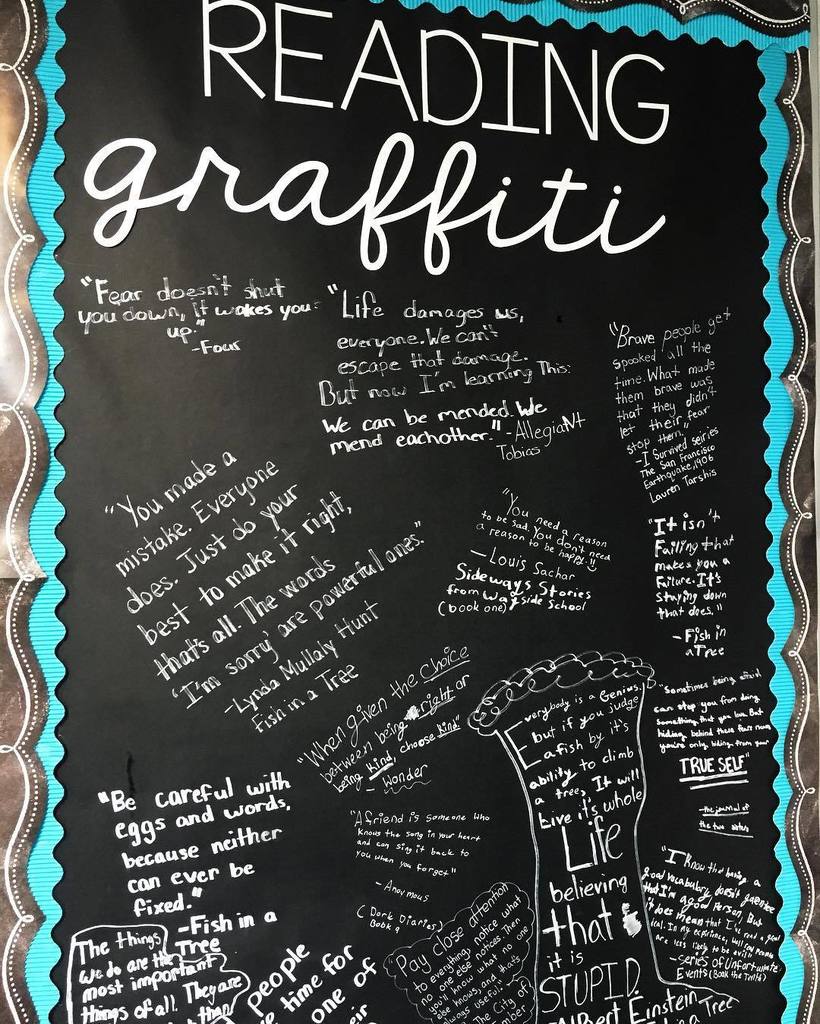 READING
graffiti
"Fear doesn't shut
you down, it wakes you
up."
-Four
"Life damages us,
everyone. We can't
escape that damage.
But now I'm learning This:
We can be mended. We
mend eachother." - AllegiaNt
Tobias
"Brave people get
spooked all the
time. What made
them brave was
that they didn't
let their fear
stop them."
-I Survived seiries
The San Francisco
Earthquake, 1906
Lauren Tarshis
"You made a
mistake. Everyone
does. Just do your
best to make it right,
that's all. The words
'I'm sorry' are powerful ones."
-Lynda Mullaly Hunt
Fish in a Tree
"You need a reason
to be sad. You don't need
a reason to be happy."
- Louis Sachar
Sideways Stories
from Wayside School
(book one)
"It isn't
Failing that
makes you a
Failure. It's
staying down
that does."
- Fish in
a Tree
"When given the Choice
between being right or
being kind, choose kind"
- Wonder
Everybody is a Genius.
but if you judge
a fish by it's
ability to climb
a tree, It will
live it's whole
Life
believing
that
it is
STUPID.
Albert Einstein
in a Tree
"Sometimes being afraid
can stop you from doing
something that you love. But
hiding behind these fears means
you're only hiding from your
TRUE SELF"
-the journal of
the two sisters
"Be careful with
eggs and words,
because neither
can ever be
fixed."
-Fish in a
Tree
"A friend is someone who
knows the song in your heart
and can sing it back to
you when you forget"
- Anoymous
(Dork Diaries)
Book 9
"I know that having a
good vocabulary doesn't guarentee
that I'm a good person. But
it does mean that I've read a great
deal. In my experience, well read people
are less likely to be evil"
-series of Unfortunate
Events (Book the Twelfth)
The things
we do are the
most important
things of all. They are
than
people
time for
one of
"Pay close attention
to everything, notice what
no one else notices. Then
you'll know what no one
else knows, and that's
always useful."
The City of
Ember